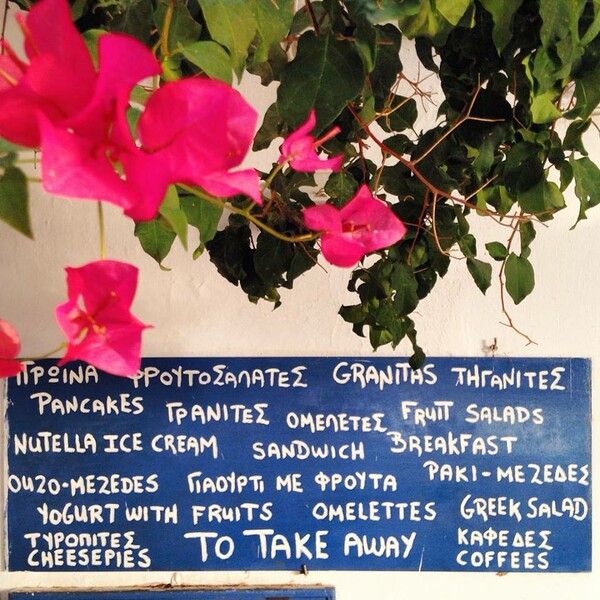 ΠΡΩΙΝΑ ΦΡΟΥΤΟΣΑΛΑΤΕΣ GRANITAS ΤΗΓΑΝΙΤΕΣ
PANCAKES ΓΡΑΝΙΤΕΣ ΟΜΕΛΕΤΕΣ FRUIT SALADS
NUTELLA ICE CREAM SANDWICH BREAKFAST
OUZO-MEZEDES ΓΙΑΟΥΡΤΙ ΜΕ ΦΡΟΥΤΑ ΡΑΚΙ-ΜΕΖΕΔΕΣ
YOGURT WITH FRUITS OMELETTES GREEK SALAD
ΤΥΡΟΠΙΤΕΣ TO TAKE AWAY ΚΑΦΕΔΕΣ
CHEESEPIES COFFEES